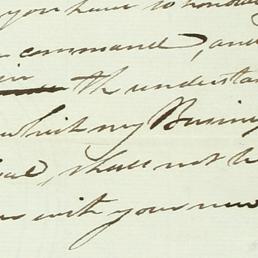 you have so honou
command, and
in
the understan
which my Busine
shall not be
with your new